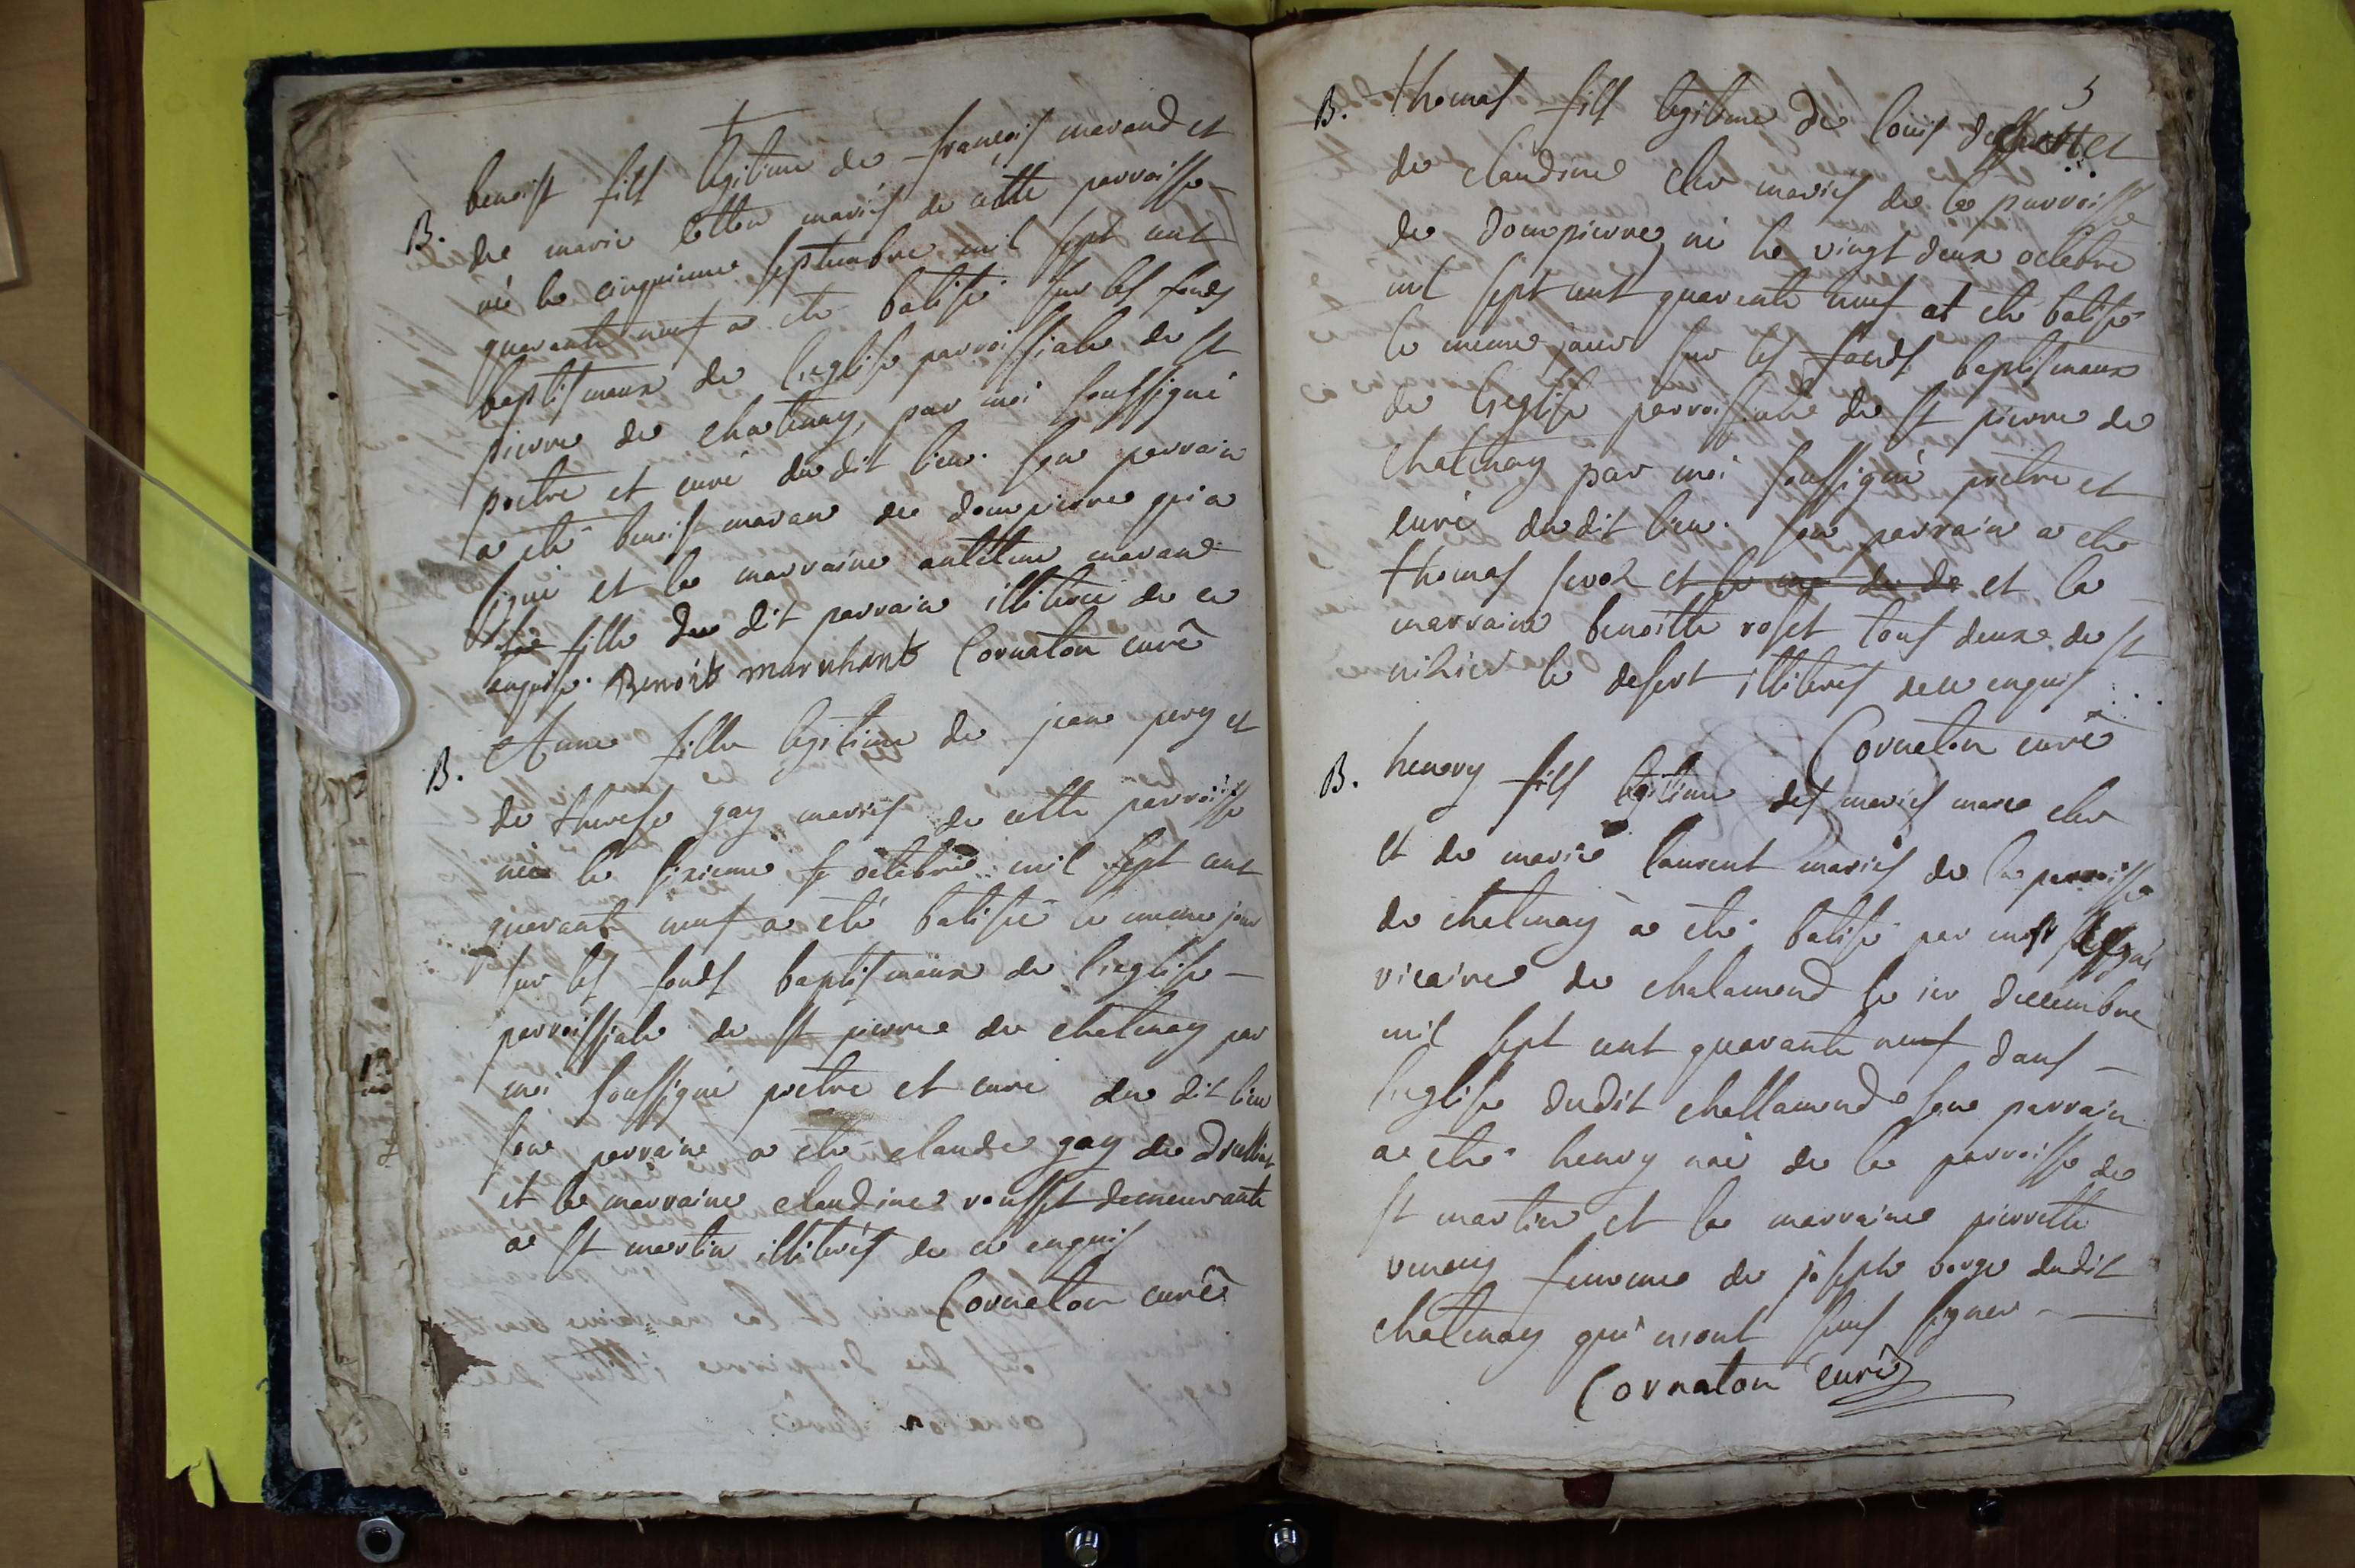 B. benoist fils legitime de françois marand et
de marie mariés de cette parroisse
né le cinquieme septembre mil sept cent
quarante neuf a ete batisé sur les fonds
baptismaux de l'eglise parroissiale de st
pierre de chatenay, par moi soussigné
pretre et curé du dit lieu. son parrain
a eté benoist maran de dompierre qui a
signé et la marraine marand
fille du dit parrain illiteréé de ce
enquise. Benoit marchant Cornaton curé
B. Anne fille legitime de jean pery et
de therese gay mariés de cette parroisse
née le sixieme octobre mil sept cent
quarante neuf a eté batisée le meme jour
sur les fonds baptismaux de l'eglise
parroissiale de st pierre de chatenay par
moi soussigné pretre et curé du dit lieu
son parrain a eté claude gay de
et la marraine claudine rousset demeurante
a st martin illiterés de ce enquis
Cornaton curé
5
B. thomas fils legitime de louis et
de claudine cler mariés de la parroisse
de dompierre, né le vingt deux octobre
mil sept cent quarante neuf at eté batisé
le meme jour sur les fonds baptismaux
de l'eglise parroissiale de st pierre de
chatenay par moi soussigné pretre et
curé dudit lieu. son parrain a eté
thomas et la
marraine benoitte roset tous deux de st
nisier le desert illiterés de ce enquis
Cornaton curé
B. henry fils legitime des mariés marc cler
et de marie laurent mariés de la parroisse
de chatenay a eté batisé par
vicaire de chalamond le ier decembre
mil sept cent quarante neuf dans
l'eglise dudit challamond son parrain
a eté henry de la parroisse de
st martin et la marraine pierrette
femme de joseph dudit
chatenay qui n'ont sus signer
Cornaton curé